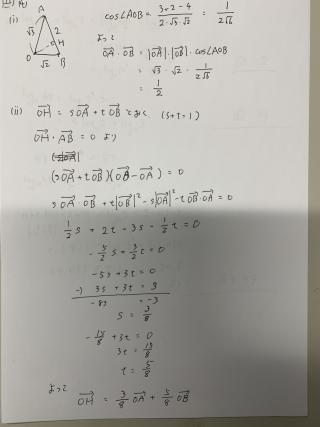 (i)
A
√3
H
O
√2
B
cos∠AOB = 3+2-4 / 2·√3·√2 = 1 / 2√6
よって
OA · OB = |OA|·|OB|·cosAOB
= √3 · √2 · 1 / 2√6
= 1/2
(ii) OH = sOA + tOB とおく (s+t=1)
OH · AB = 0 より
(sOA + tOB)(OB - OA) = 0
sOA · OB + t|OB|² - s|OA|² - tOB·OA = 0
1/2 s + 2t - 3s - 1/2 t = 0
- 5/2 s + 3/2 t = 0
-5s + 3t = 0
-) 3s + 3t = 3
-8s = -3
s = 3/8
- 15/8 + 3t = 0
3t = 15/8
t = 5/8
よって
OH = 3/8 OA + 5/8 OB